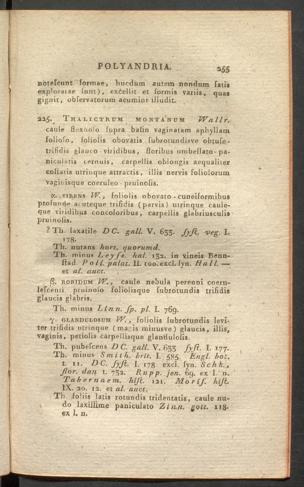 POLYANDRIA. 255
notescunt formae, hucdum autem nondum satis
exploratae sunt), excellit et formis variis, quas
gignit, observatorum acumini illudit.
225. THALICTRUM MONTANUM Wallr.
caule flexuoso supra basin vaginatam aphyllam
folioso, foliolis obovatis subrotundisve obtuse-
trifidis glauco-viridibus, floribus umbellato-pa-
niculatis cernuis, carpellis oblongis aequaliter
costatis utrinque attractis, illis nervis foliolorum
vaginisque coeruleo-pruinosis.
α. VIRENS W., foliolis obovato-cuneiformibus
profunde acuteque trifidis (parvis) utrinque caule-
que viridibus concoloribus, carpellis glabriusculis
pruinosis.
? Th. saxatile DC. gall. V. 633. syst. veg. I.
178.
Th. nutans hort. quorumd.
Th. minus Leyss. hal. 132. in vineis Benn-
stad. Poll. palat. II. 100. excl. syn. Hall. —
et al. auct.
β. RORIDUM W., caule nebula perenni coeru-
lescenti pruinoso foliolisque subrotundis trifidis
glaucis glabris.
Th. minus Linn. sp. pl. I. 769.
γ. GLANDULOSUM W., foliolis subrotundis levi-
ter trifidis utrinque (magis minusve) glaucis, illis,
vaginis, petiolis carpellisque glandulosis.
Th. pubescens DC. gall. V. 633. syst. I. 177.
Th. minus Smith. brit. I. 585. Engl. bot.
t. 11. DC. syst. I. 178 excl. syn. Schk.,
flor. dan t. 732. Rupp. jen. 69. ex l. n.
Tabernaem. hist. 121. Moris. hist.
IX. 20. 12. et al. auct.
Th. foliis latis rotundis tridentatis, caule nu-
do laxissime paniculato Zinn. gott. 118.
ex l. n.